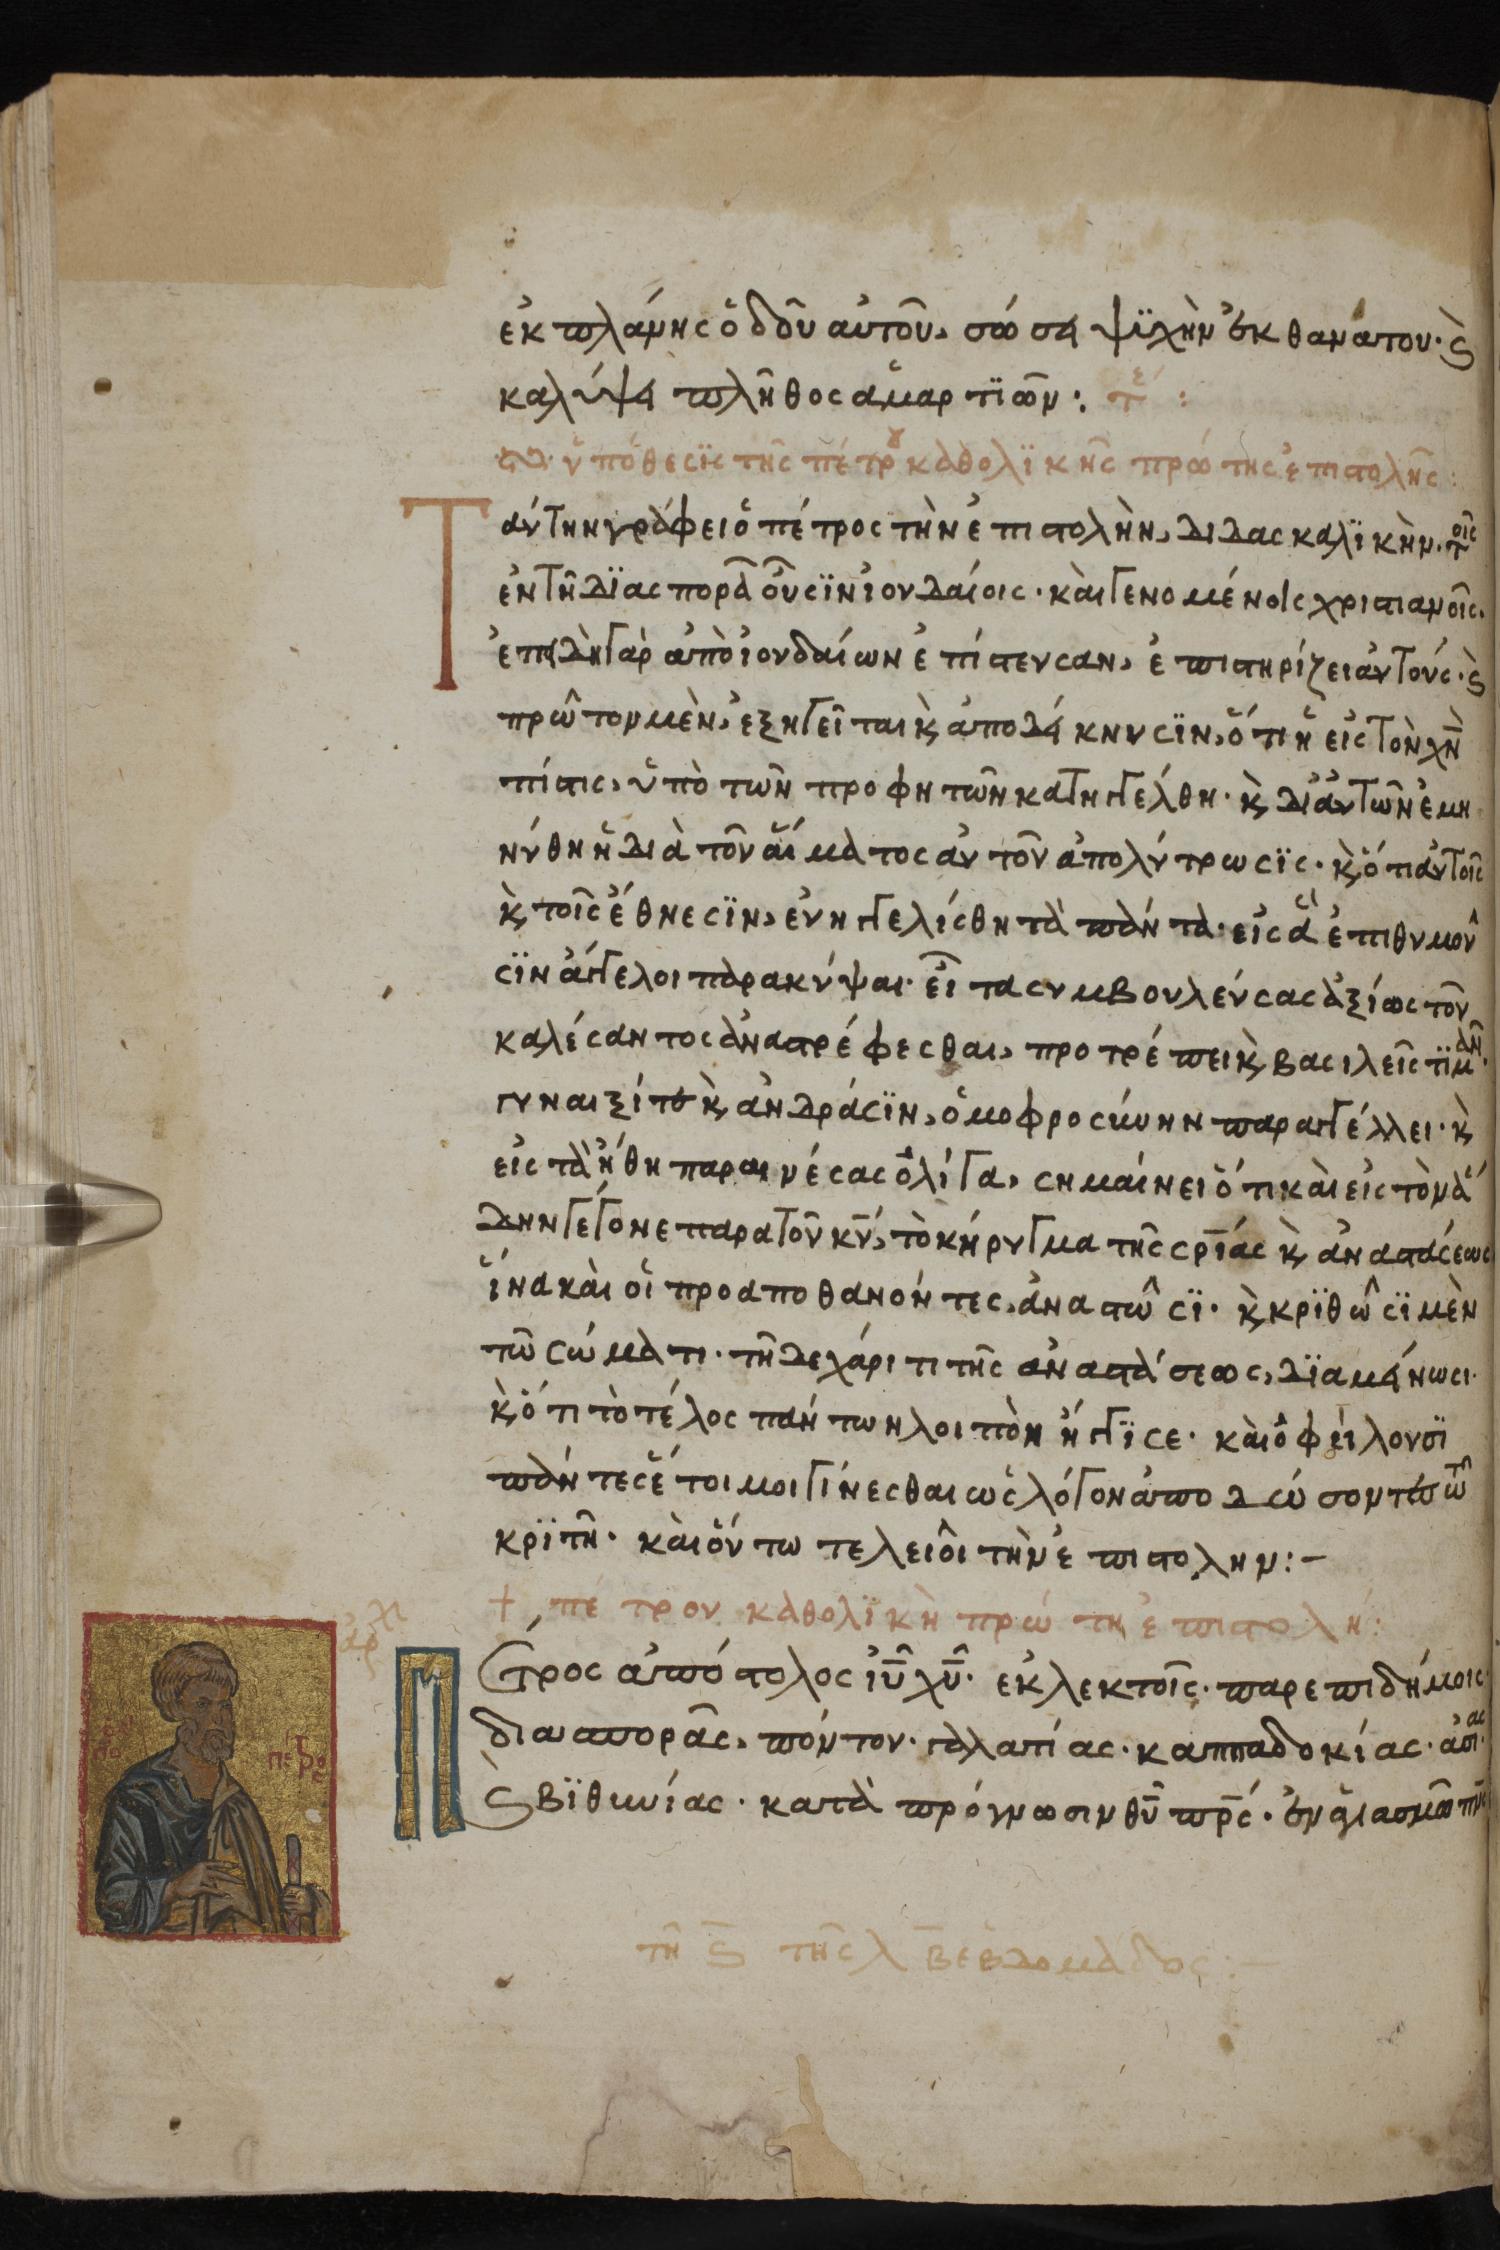 ἐκ πλάνης ὁδοῦ αὐτοῦ, σώσει ψϋχὴν ἐκ θανάτου· ϗ
καλύψει πλῆθος ἁμαρτϊῶν: τέ:
ὑπόθεσϊς τῆς πέτρου καθολϊκῆς πρώτης ἐπιστολῆς:
Ταύτην γράφει ὁ πέτρος τὴν ἐπιστολὴν, διδασκαλϊκὴν· τοῖς
ἐν τῆ δϊασπορᾶ οὖσϊν ἰουδαίοις· καὶ γενομένοις χριστιανοῖς.
ἐπειδὴ γὰρ ἀπὸ ἰουδαίων ἐπίστευσαν, ἐπιστηρίζει αὐτούς· ϗ
πρῶτον μὲν, ἐξηγεῖται ϗ ἀποδείκνυσϊν, ὅτι ἡ εἰς τὸν χν̅
πίστις, ὑπὸ τῶν προφητῶν κατηγγέλθη· ϗ δι' αὐτῶν ἐμη
νύθη ἡ διὰ τοῦ αἵματος αὐτοῦ ἀπολύτρωσϊς· ϗ ὅτι αὐτοῖς
ϗ τοῖς ἔθνεσϊν, εὐηγγελίσθη τὰ πάντα· εἰς ἃ ἐπιθυμοῦ
σϊν ἄγγελοι παρακύψαι· εἶτα συμβουλεύσας ἀξίως τοῦ
καλέσαντος ἀναστρέφεσθαι, προτρέπει ϗ βασιλεῖς τϊμᾶν·
γυναιξί τε ϗ ἀνδράσϊν, ὁμοφροσύνην παραγγέλλει· ϗ
εἰς τὰ ἤθη παραινέσας ὀλίγα, σημαίνει ὅτι καὶ εἰς τὸν ἅ
δην γέγονε παρα τοῦ κυ̅, τὸ κήρυγμα τῆς σρ̅ίας ϗ ἀναστάσεως
ἵνα καὶ οἱ προαποθανόντες, ἀναστῶσϊ· ϗ κρϊθῶσϊ μὲν
τῶ σώματι· τῆ δε χάριτι τῆς ἀναστάσεως, δϊαμείνωσι·
ϗ ὅτι τὸ τέλος πάντων λοιπὸν ἤγγϊσε· καὶ ὀφείλουσϊ
πάντες ἕτοιμοι γίνεσθαι ὡς λόγον ἀποδώσοντες τῶ
κρϊτῆ· καὶ οὕτω τελειοῖ τὴν ἐπιστολην:–
+ πέτρου καθολϊκὴ πρώτη ἐπιστολή:
ἀρχ
Πέτρος ἀπόστολος ἰυ̅ χυ̅· ἐκλεκτοῖς· παρεπιδήμοις
διασπορᾶς, πόντου· γαλατίας· καππαδοκίας· ἀσίας·
ϗ βϊθυνίας· κατὰ πρόγνωσιν θυ̅ πρ̅ς· ἐν ἁγιασμῶ πνς̅
πέτρος
τῆ ϛ̅ τῆς λ̅β ἑβδομάδος:–